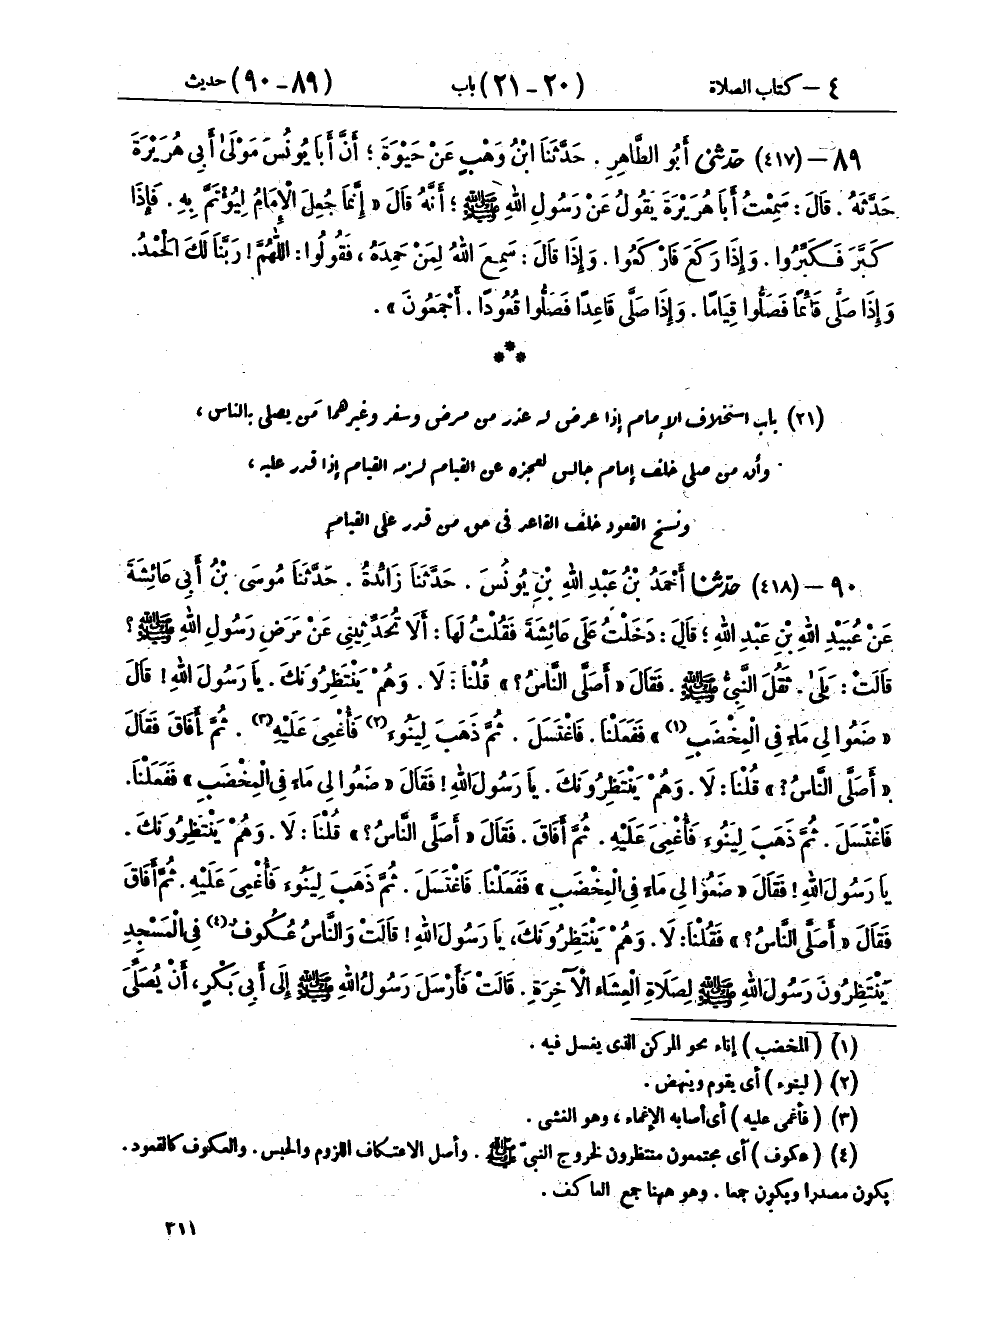 ٤ – كتاب الصلاة (٢٠ – ٢١) باب (٨٩ – ٩٠) حديث
٨٩ – (٤١٧) حَدَّثَنِي أَبُو الطَّاهِرِ . حَدَّثَنَا ابْنُ وَهْبٍ عَنْ حَيْوَةَ ؛ أَنَّ أَبَا يُونُسَ مَوْلَىٰ أَبِي هُرَيْرَةَ
حَدَّثَهُ . قَالَ : سَمِعْتُ أَبَا هُرَيْرَةَ يَقُولُ عَنْ رَسُولِ اللهِ ﷺ ؛ أَنَّهُ قَالَ « إِنَّمَا جُعِلَ الْإِمَامُ لِيُؤْتَمَّ بِهِ . فَإِذَا
كَبَّرَ فَكَبِّرُوا . وَإِذَا رَكَعَ فَارْكَعُوا . وَإِذَا قَالَ : سَمِعَ اللهُ لِمَنْ حَمِدَهُ ، فَقُولُوا : اللَّهُمَّ ! رَبَّنَا لَكَ الْحَمْدُ.
وَإِذَا صَلَّى قَائِمًا فَصَلُّوا قِيَامًا . وَإِذَا صَلَّى قَاعِدًا فَصَلُّوا قُعُودًا . أَجْمَعُونَ » .
***
(٢١) باب استخلاف الإمام إذا عرض له عذر من مرض وسفر وغيرهما من يصلى بالناس ،
وأن من صلى خلف إمام جالس لعجزه عن القيام لزمه القيام إذا قدر عليه ،
ونسخ القعود خلف القاعد فى حق من قدر على القيام
٩٠ – (٤١٨) حَدَّثَنَا أَحْمَدُ بْنُ عَبْدِ اللهِ بْنِ يُونُسَ . حَدَّثَنَا زَائِدَةُ . حَدَّثَنَا مُوسَى بْنُ أَبِي عَائِشَةَ
عَنْ عُبَيْدِ اللهِ بْنِ عَبْدِ اللهِ ؛ قَالَ : دَخَلْتُ عَلَى عَائِشَةَ فَقُلْتُ لَهَا : أَلَا تُحَدِّثِينِي عَنْ مَرَضِ رَسُولِ اللهِ ﷺ ؟
قَالَتْ : بَلَىٰ . ثَقُلَ النَّبِيُّ ﷺ . فَقَالَ « أَصَلَّى النَّاسُ ؟ » قُلْنَا : لَا . وَهُمْ يَنْتَظِرُونَكَ . يَا رَسُولَ اللهِ ! قَالَ
« ضَعُوا لِي مَاءً فِي الْمِخْضَبِ(١) » فَفَعَلْنَا . فَاغْتَسَلَ . ثُمَّ ذَهَبَ لِيَنُوءَ(٢) فَأُغْمِيَ عَلَيْهِ(٣) . ثُمَّ أَفَاقَ فَقَالَ
« أَصَلَّى النَّاسُ ؟ » قُلْنَا : لَا . وَهُمْ يَنْتَظِرُونَكَ . يَا رَسُولَ اللهِ ! فَقَالَ « ضَعُوا لِي مَاءً فِي الْمِخْضَبِ » فَفَعَلْنَا.
فَاغْتَسَلَ . ثُمَّ ذَهَبَ لِيَنُوءَ فَأُغْمِيَ عَلَيْهِ . ثُمَّ أَفَاقَ . فَقَالَ « أَصَلَّى النَّاسُ ؟ » قُلْنَا : لَا . وَهُمْ يَنْتَظِرُونَكَ .
يَا رَسُولَ اللهِ ! فَقَالَ « ضَعُوا لِي مَاءً فِي الْمِخْضَبِ » فَفَعَلْنَا. فَاغْتَسَلَ . ثُمَّ ذَهَبَ لِيَنُوءَ فَأُغْمِيَ عَلَيْهِ . ثُمَّ أَفَاقَ
فَقَالَ « أَصَلَّى النَّاسُ ؟ » فَقُلْنَا : لَا . وَهُمْ يَنْتَظِرُونَكَ، يَا رَسُولَ اللهِ ! قَالَتْ وَالنَّاسُ عُكُوفٌ(٤) فِي الْمَسْجِدِ
يَنْتَظِرُونَ رَسُولَ اللهِ ﷺ لِصَلَاةِ الْعِشَاءِ الْآخِرَةِ . قَالَتْ فَأَرْسَلَ رَسُولُ اللهِ ﷺ إِلَى أَبِي بَكْرٍ، أَنْ يُصَلِّيَ
(١) ( المخضب ) إناء نحو المركن الذى يغسل فيه .
(٢) ( لينوء ) أى يقوم وينهض .
(٣) ( فأغمى عليه ) أى أصابه الإغماء ، وهو الغشى .
(٤) ( عكوف ) أى مجتمعون منتظرون لخروج النبىّ ﷺ . وأصل الاعتكاف اللزوم والحبس . والعكوف كالقعود .
يكون مصدرا ويكون جمعا . وهو ههنا جمع العاكف .
٣١١